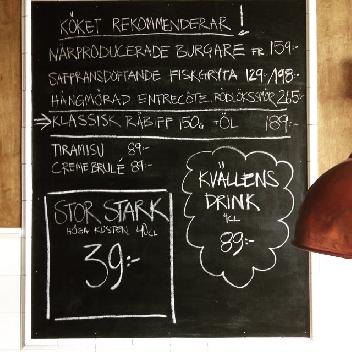 KÖKET REKOMMENDERAR!
NÄRPRODUCERADE BURGARE FR 159:-
SAFFRANSDOFTANDE FISKGRYTA 129/198:-
HÄNGMÖRAD ENTRECÔTE, RÖDLÖKSSMÖR 265:-
→KLASSISK RÅBIFF 150G +ÖL 189:-
TIRAMISU 89:-
CREME BRULÉ 89:-
STOR STARK
HÖGA KUSTEN 40CL
39:-
KVÄLLENS
DRINK
4CL
89:-